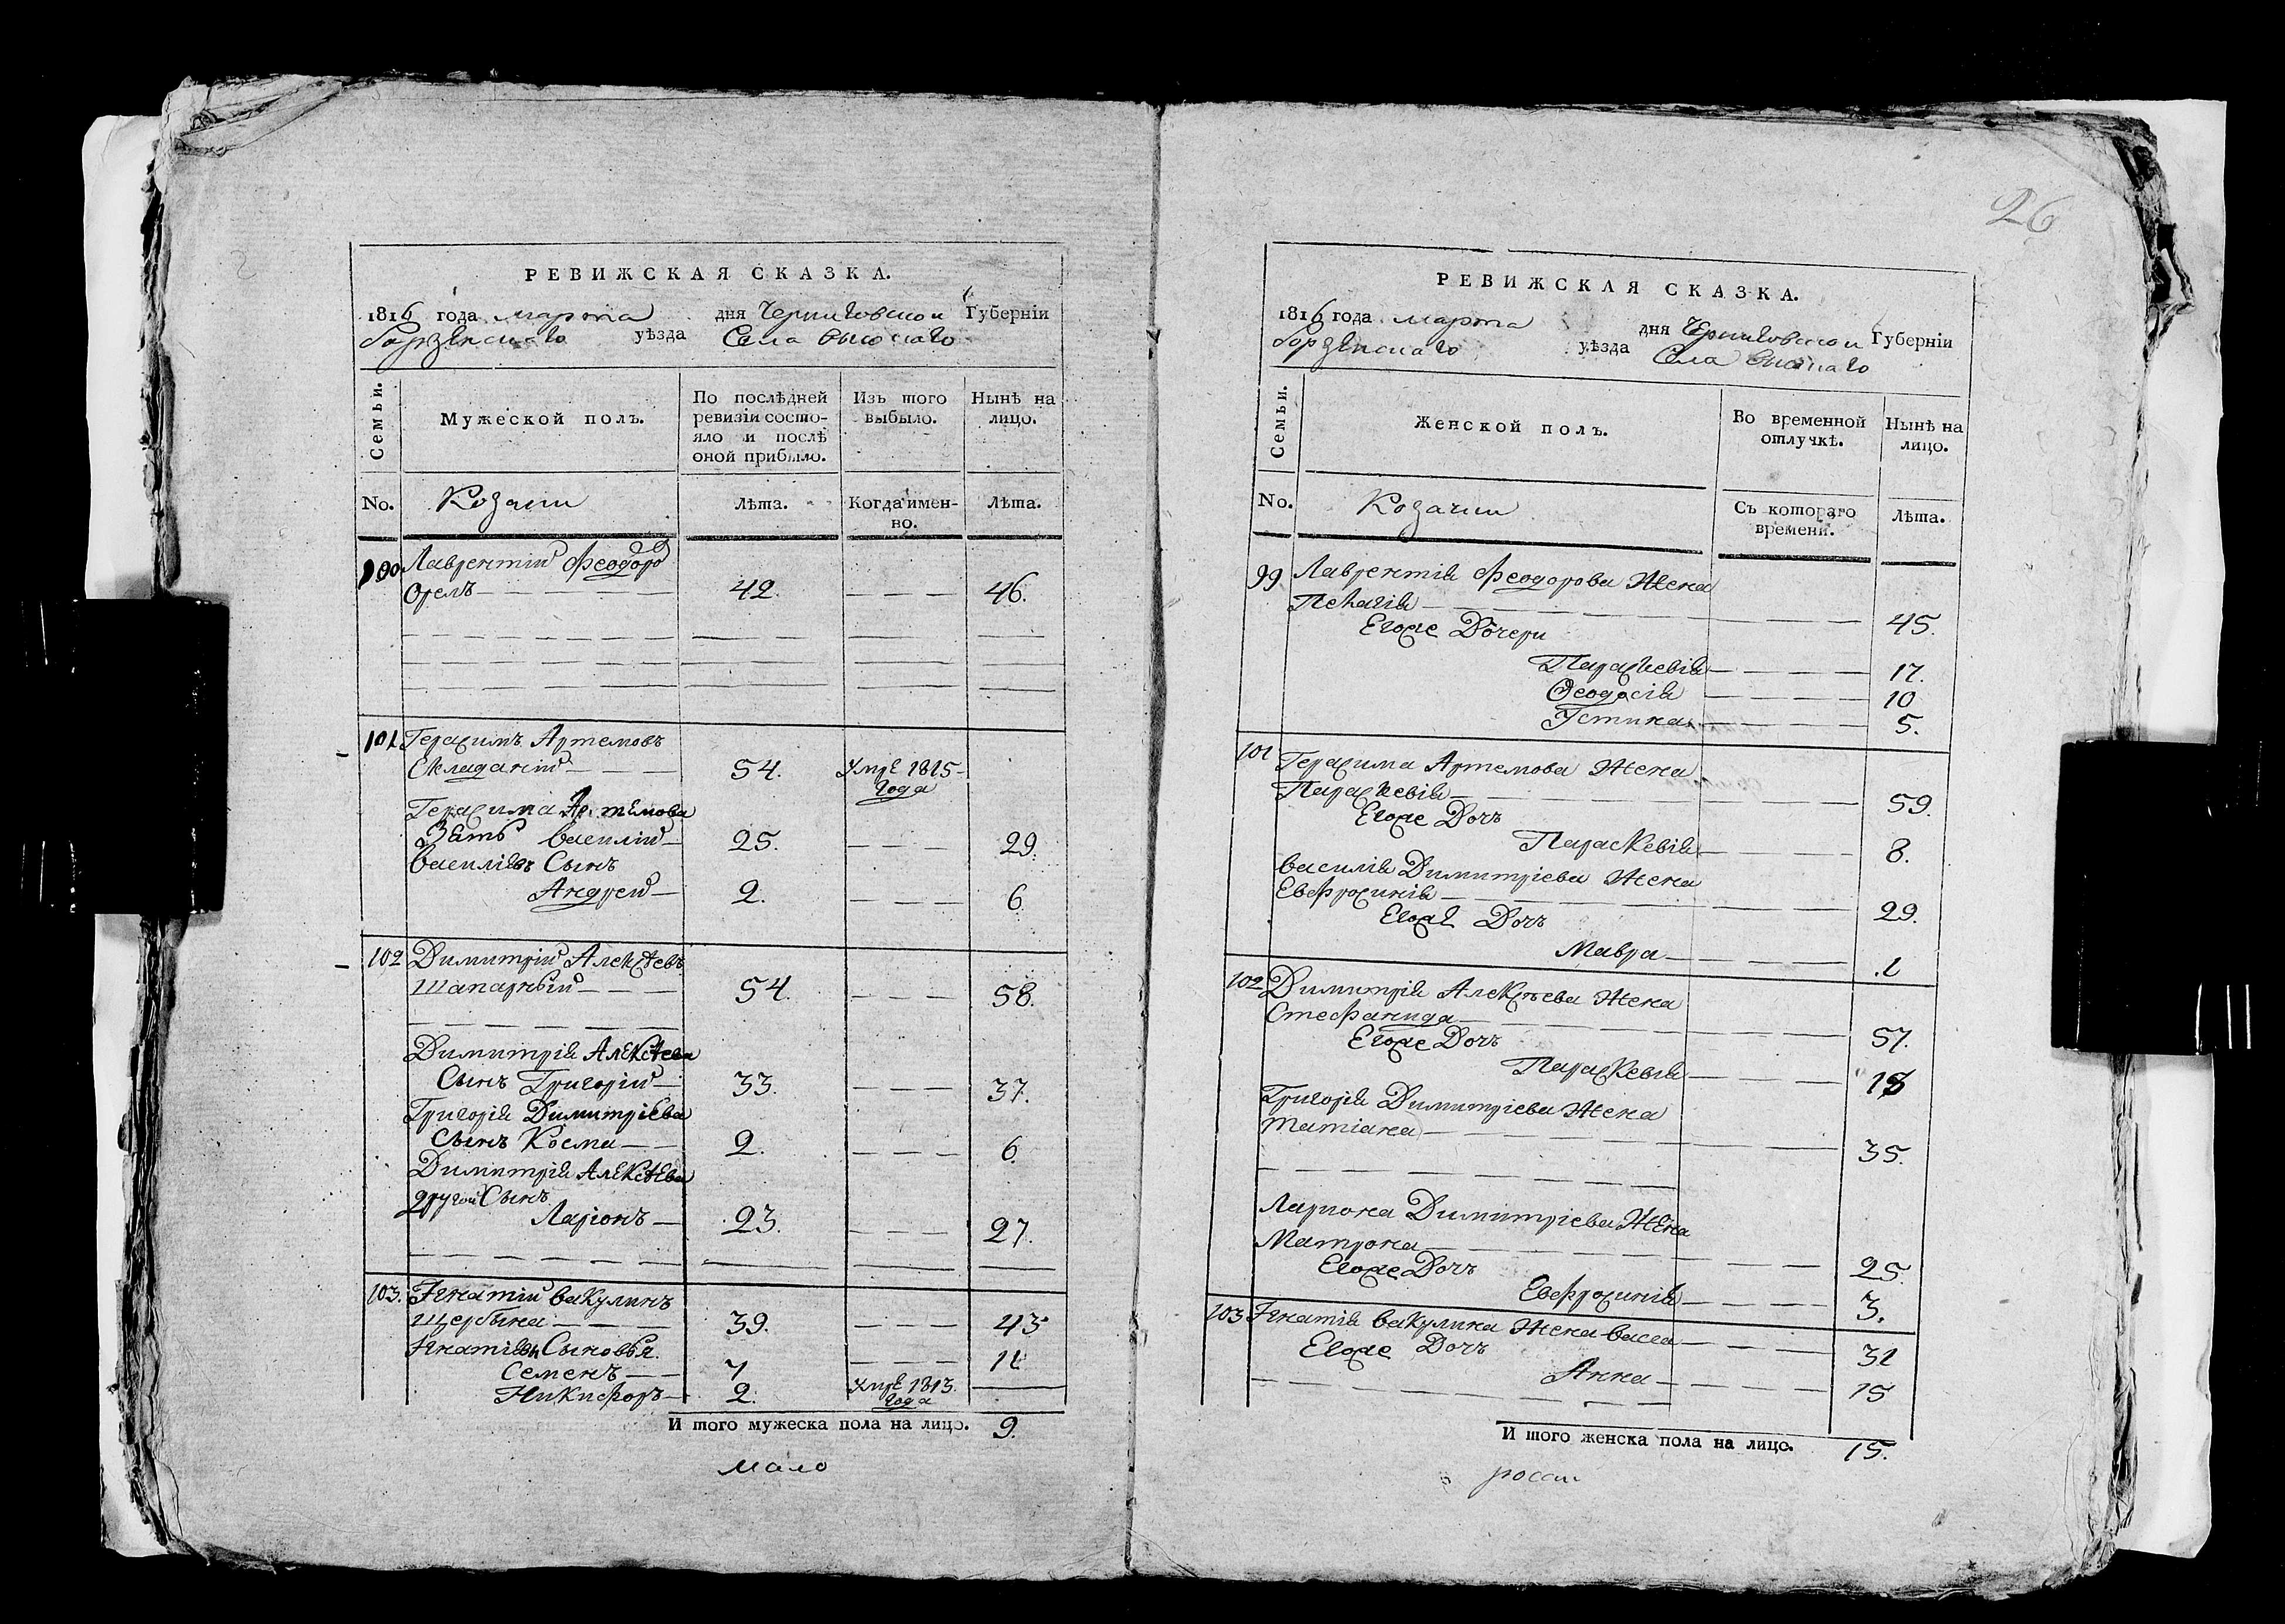 26
РЕВИЖСКАЯ СКАЗКА.
1816 года марта дня Черниговской Губерніи
Борзенскаго уѣзда Села высокаго
Семьи.
Мужеской полъ.
По послѣдней ревизіи состояло и послѣ оной прибыло.
Изъ того выбыло.
Нынѣ на лицо.
No. Козаки Лѣта. Когда имен-но. Лѣта.
100 Лаврентій Феодоро
Орелъ 42. 46.
101 Герасимъ Артемовъ
Складаній 54. умре 1815
года
Герасима Артемова
Зять василій 25. 29.
василіевъ Сынъ
Андрей 2. 6
102 Димитрій Алексѣевъ
Шапарный 54. 58.
Димитрія Алексѣева
Сынъ Григорій 33. 37.
Григорія Димитріева
Сынъ Косма 2. 6.
Димитрія Алексѣева
другой Сынъ
Ларіонъ 23. 27.
103. Игнатій вакулинъ
Щербина 39. 43
Игнатіевы Сыновья.
Семенъ 7 11
Никифоръ 2. умре 1813.
года
И того мужеска пола на лицо. 9.
мало
РЕВИЖСКАЯ СКАЗКА.
1816 года марта дня Черниговской Губерніи
Борзенскаго уѣзда Села высокаго
Семьи.
Женской полъ.
Во временной отлучкѣ.
Нынѣ на лицо.
No. Козачки Съ котораго времени. Лѣта.
99 Лаврентія Феодорова Жена
Пелагія 45.
Егоже Дочери
Параскевія 17.
Феодосія 10
Устина 5.
101 Герасима Артемова Жена
Параскевія 59.
Егоже Дочь
Параскевія 8.
василія Димитріева Жена
Евфросинія 29.
Егоже Дочь
Мавра 1
102 Димитрія Алексѣева Жена
Стефанида 57.
Егоже Дочь
Параскевія
Григорія Димитріева Жена
татіана 35.
Лариона Димитріева Жена
Матрона 25.
Егоже Дочь
Евфросинія 3.
103 Игнатія вакулина Жена васса 31
Егоже Дочь
Анна 15
И того женска пола на лицо. 15.
росси